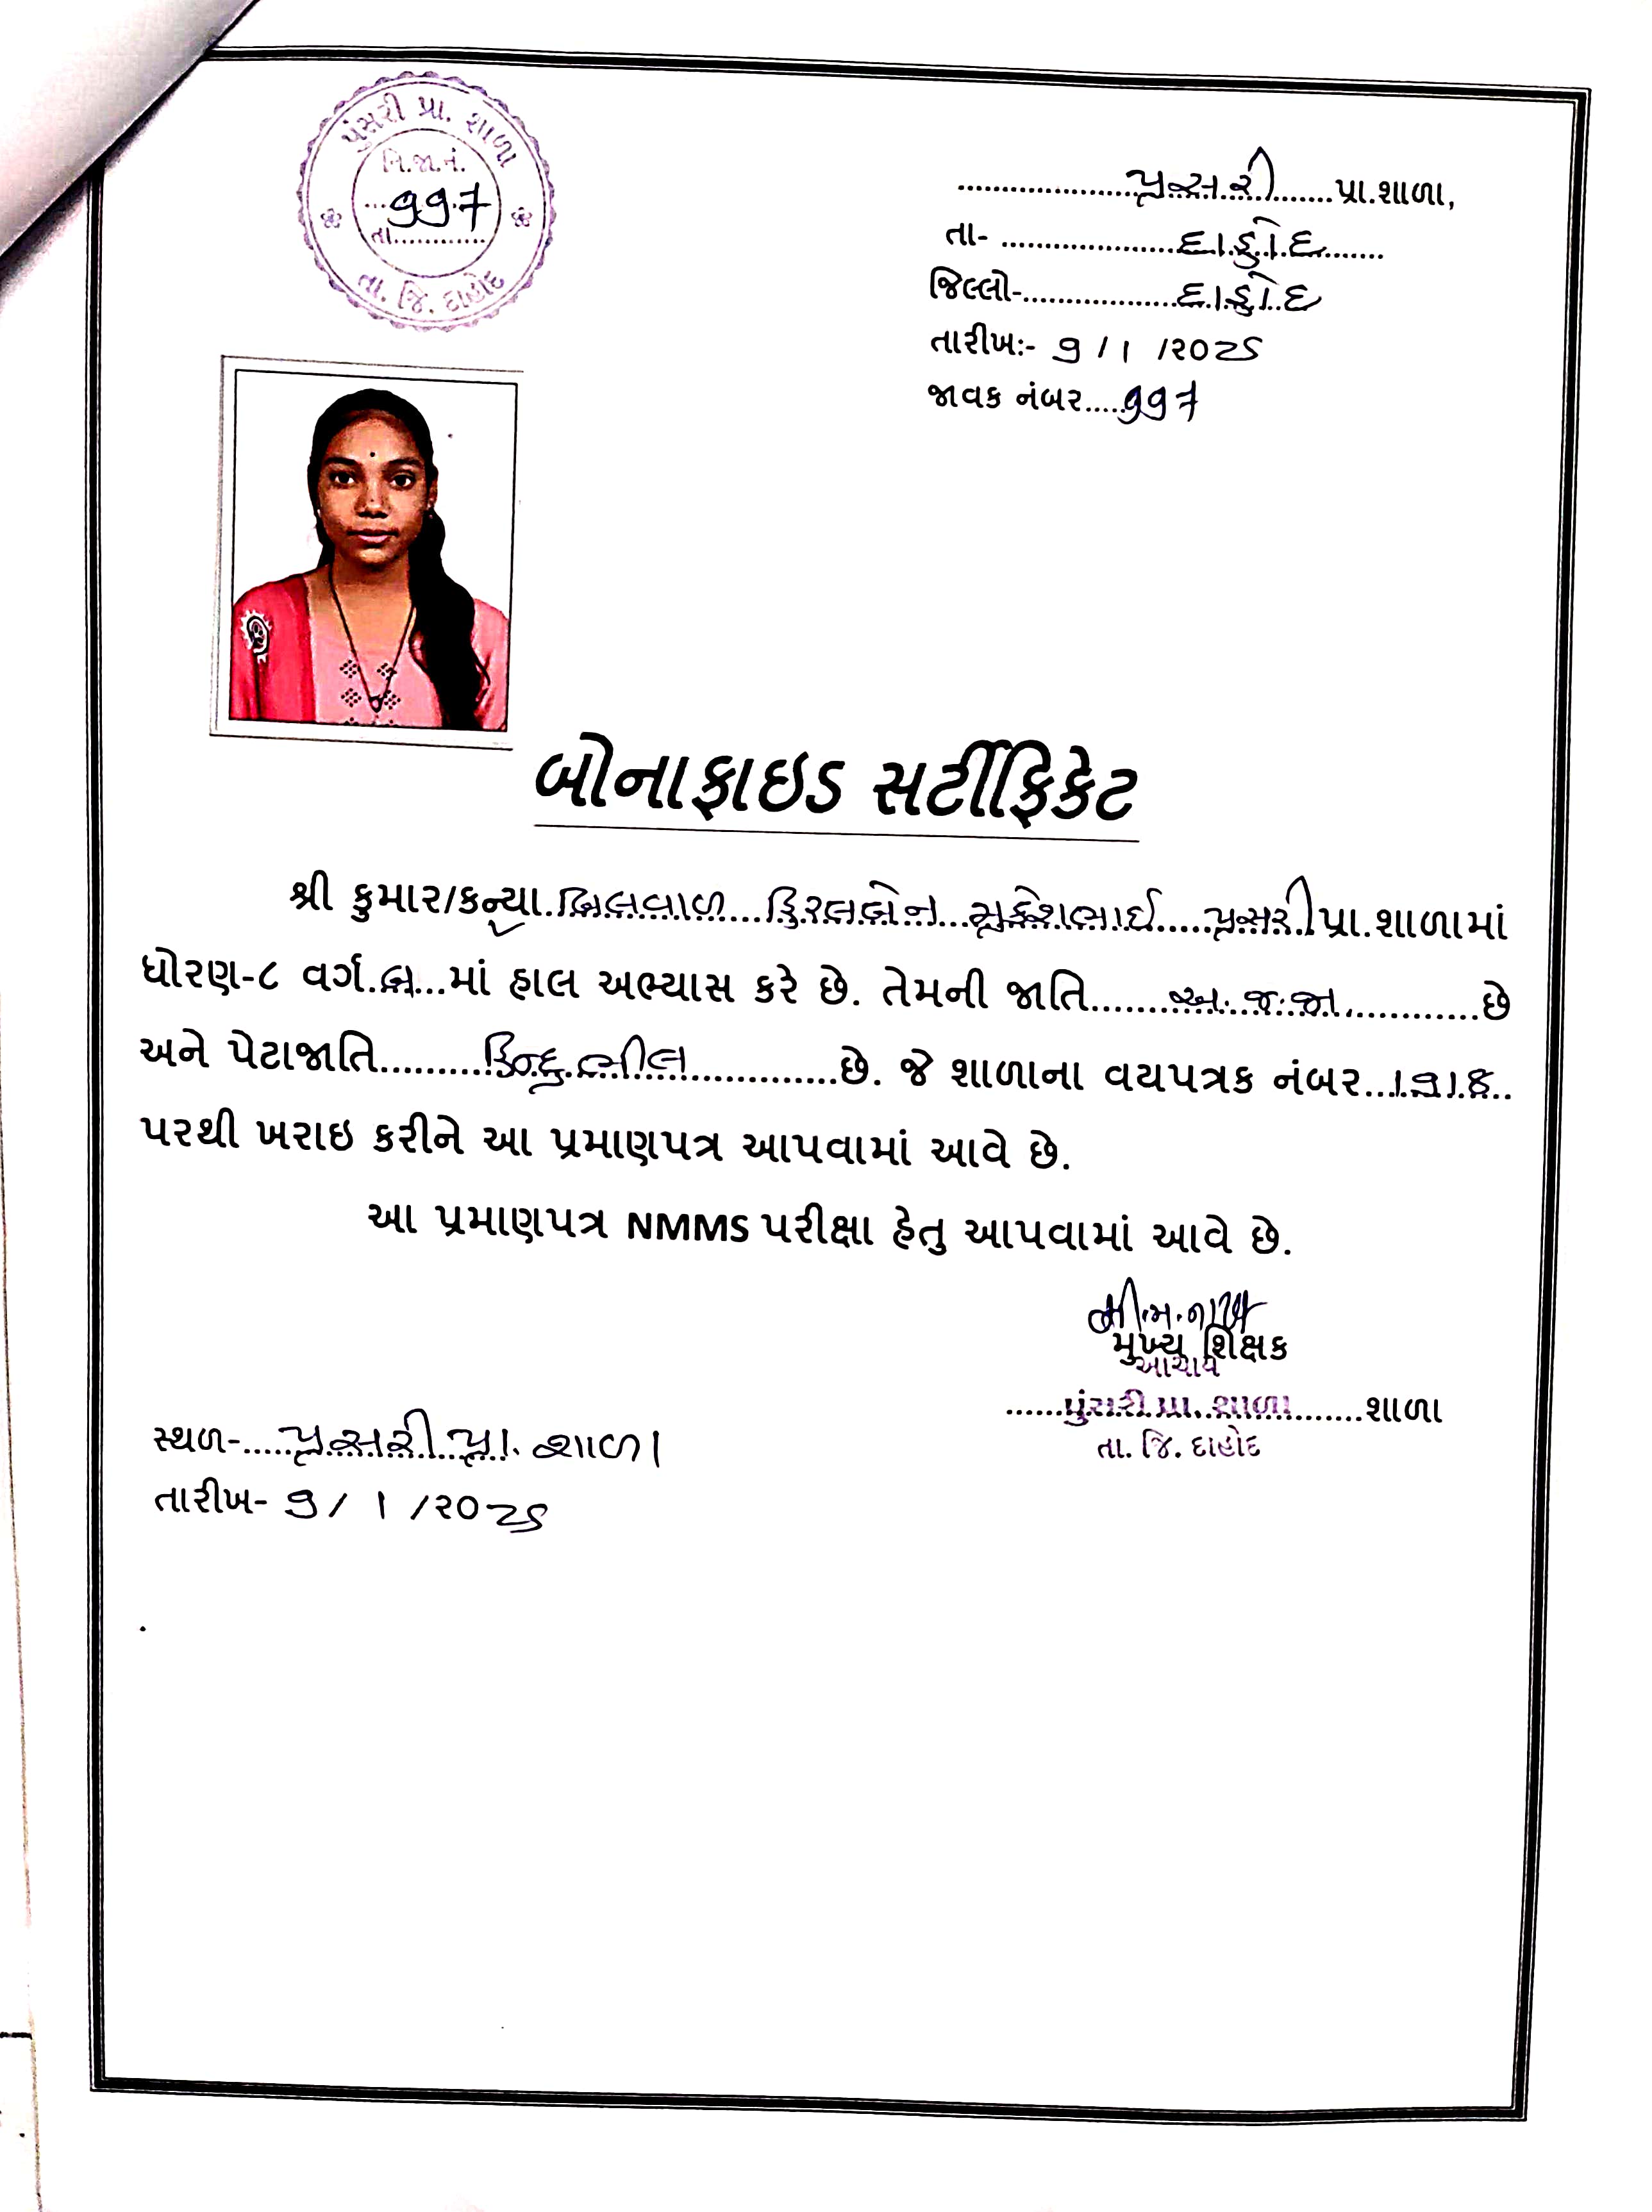 પુંસરી પ્રા. શાળા
નિ.જા.નં.
...997
તા............
તા. જિ. દાહોદ
....................પુંસરી.......પ્રા.શાળા,
તા- ....................દાહોદ.......
જિલ્લો-..................દાહોદ
તારીખઃ- 9/1/૨૦૨૬
જાવક નંબર.....997
બોનાફાઇડ સર્ટીફિકેટ
શ્રી કુમાર/કન્યા.બિલવાળ....હિરલબેન...મુકેશભાઈ.....પુંસરી.પ્રા.શાળામાં
ધોરણ-૮ વર્ગ.બ...માં હાલ અભ્યાસ કરે છે. તેમની જાતિ.......અ.જ.જા.............છે
અને પેટાજાતિ.........હિન્દુ ભીલ..............છે. જે શાળાના વયપત્રક નંબર...
પરથી ખરાઇ કરીને આ પ્રમાણપત્ર આપવામાં આવે છે.
આ પ્રમાણપત્ર NMMS પરીક્ષા હેતુ આપવામાં આવે છે.
મુખ્ય શિક્ષક
આચાર્ય
......પુંસરી પ્રા. શાળા........શાળા
તા. જિ. દાહોદ
સ્થળ-.....પુંસરી પ્રા. શાળા
તારીખ- 9/1/૨૦૨૬